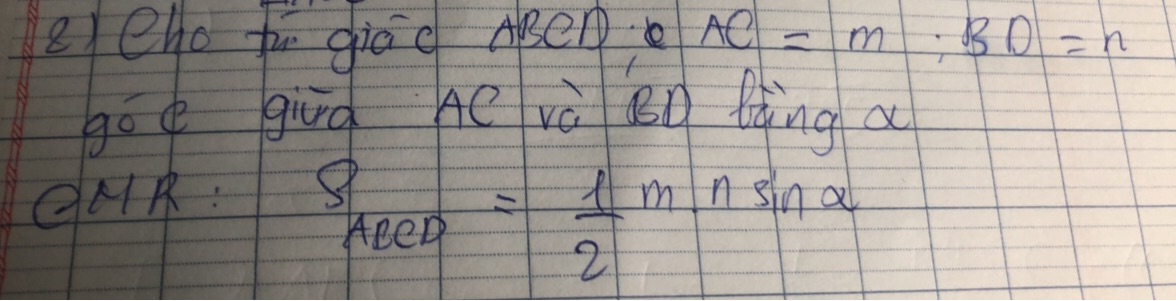 8) Cho tứ giác ABCD c AC = m ; BD = n
góc giữa AC và BD bằng α
CMR: S ABCD = 1/2 m.n sin α